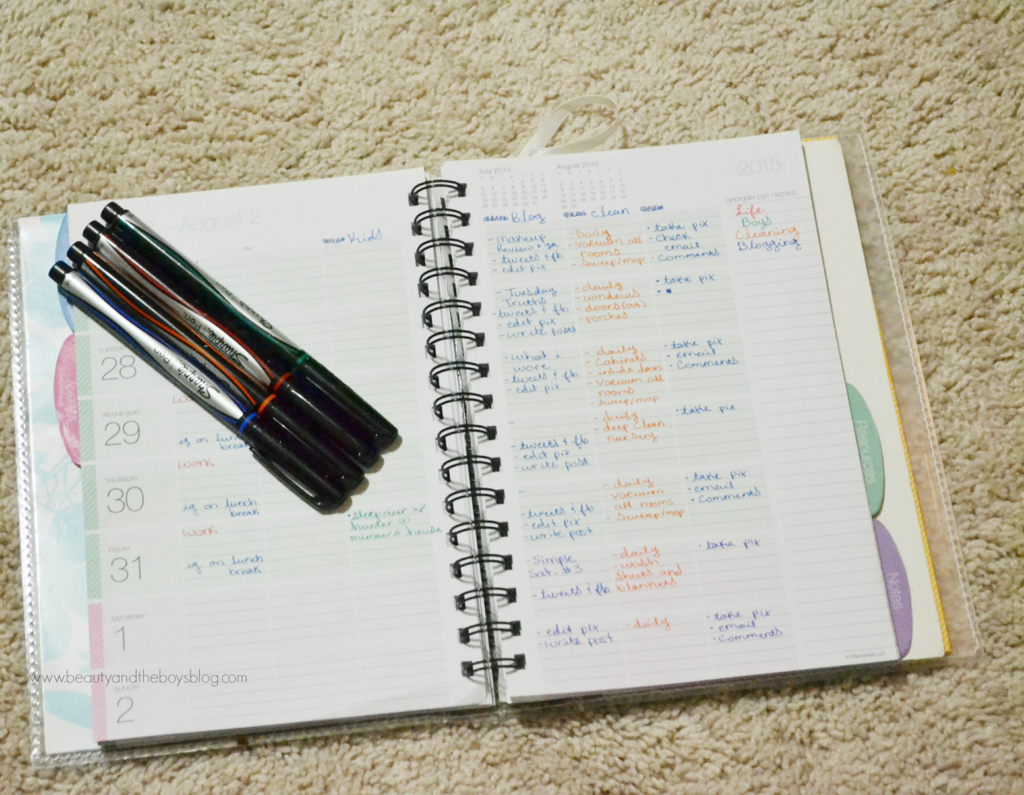 – August 2
PM
Kids
TUESDAY
28
WEDNESDAY
29
ig on lunch
break
work
THURSDAY
30
ig on lunch
break
work
• sleepover
hunter @
mimaw's house
FRIDAY
31
ig on lunch
break
SATURDAY
1
SUNDAY
2
Sharpie Pen
Sharpie Pen
Sharpie Pen
July 2015
August 2015
2015
GROCERY LIST / NOTES
Blog
Clean
Life
Boys
Cleaning
Blogging
- Makeup
Review
- tweets & fb
- edit pix
Daily
- vacuum all
rooms
- sweep/mop
• take pix
• check
email
• comments
- Tuesday
Truths
- tweets & fb
- edit pix
- write posts
- daily
- windows
- doors
- porches
• take pix
- what i
wore
- tweets & fb
- edit pix
- daily
- cabinets
- inside doors
- vacuum all
rooms
- sweep/mop
• take pix
• email
• comments
-
- tweets & fb
- edit pix
- write post
- daily
- deep clean
nursery
• take pix
-
- tweets & fb
- edit pix
- write post
- daily
- vacuum
all rooms
- sweep/mop
• take pix
• email
• comments
- Simple
Sat. #3
- tweets & fb
- daily
- wash
sheets and
blankets
• take pix
- edit pix
- write post
- daily
• take pix
• email
• comments
Notes
www.beautyandtheboysblog.com